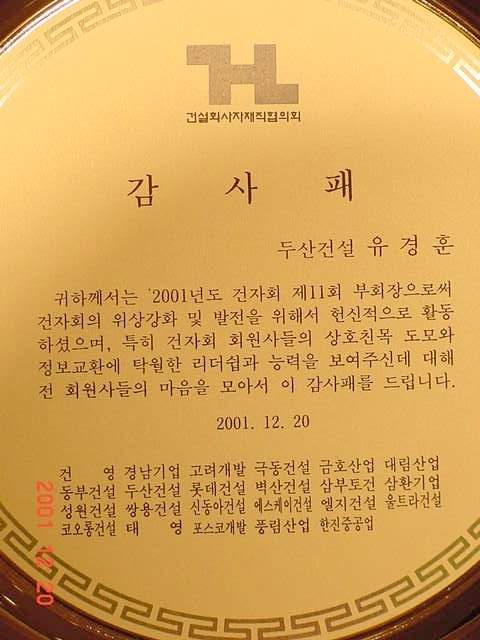 건설회사자재직협의회
감 사 패
두산건설 유경훈
귀하께서는 '2001년도 건자회 제11회 부회장으로써
건자회의 위상강화 및 발전을 위해서 헌신적으로 활동
하셨으며, 특히 건자회 회원사들의 상호친목 도모와
정보교환에 탁월한 리더쉽과 능력을 보여주신데 대해
전 회원사들의 마음을 모아서 이 감사패를 드립니다.
2001. 12. 20
건 영 경남기업 고려개발 극동건설 금호산업 대림산업
동부건설 두산건설 롯데건설 벽산건설 삼부토건 삼환기업
성원건설 쌍용건설 신동아건설 에스케이건설 엘지건설 울트라건설
코오롱건설 태 영 포스코개발 풍림산업 한진중공업
2001 12 20